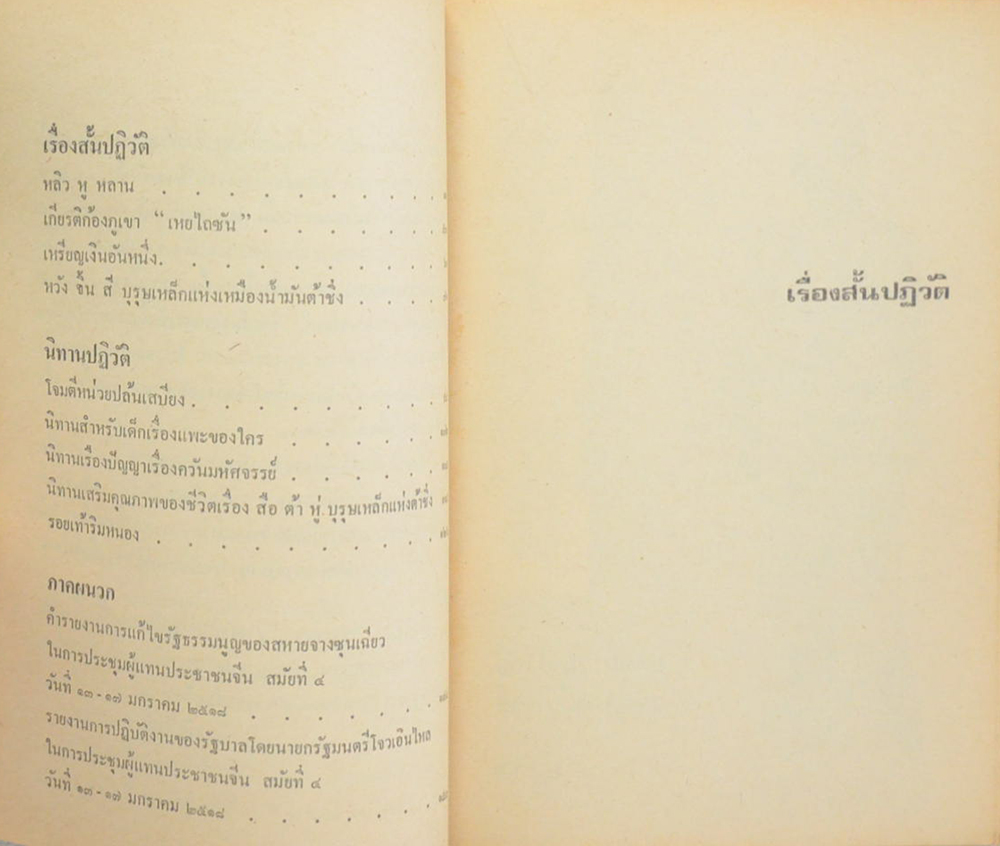 เรื่องสั้นปฏิวัติ
หลิว หู หลาน . . . . . . . . .
เกียรติก้องภูเขา “เหยไถซัน” . . . . . .
เหรียญเงินอันหนึ่ง. . . . . . . . .
หวัง จิ้น สี่ บุรุษเหล็กแห่งเหมืองน้ำมันต้าชิ่ง . . .
นิทานปฏิวัติ
โจมตีหน่วยปล้นเสบียง . . . . . . . .
นิทานสำหรับเด็กเรื่องแพะของใคร . . . . .
นิทานเรื่องปัญญาเรื่องควันมหัศจรรย์ . . . . .
นิทานเสริมคุณภาพของชีวิตเรื่อง สือ ต้า หู่ บุรุษเหล็กแห่งต้าชิ่ง
รอยเท้าริมหนอง . . . . . . . . .
ภาคผนวก
คำรายงานการแก้ไขรัฐธรรมนูญของสหายจางชุนเฉียว
ในการประชุมผู้แทนประชาชนจีน สมัยที่ ๔
วันที่ ๑๓ - ๑๗ มกราคม ๒๕๑๘ . . . . . .
รายงานการปฏิบัติงานของรัฐบาลโดยนายกรัฐมนตรีโจวเอินไหล
ในการประชุมผู้แทนประชาชนจีน สมัยที่ ๔
วันที่ ๑๓ - ๑๗ มกราคม ๒๕๑๘ . . . . . .
เรื่องสั้นปฏิวัติ